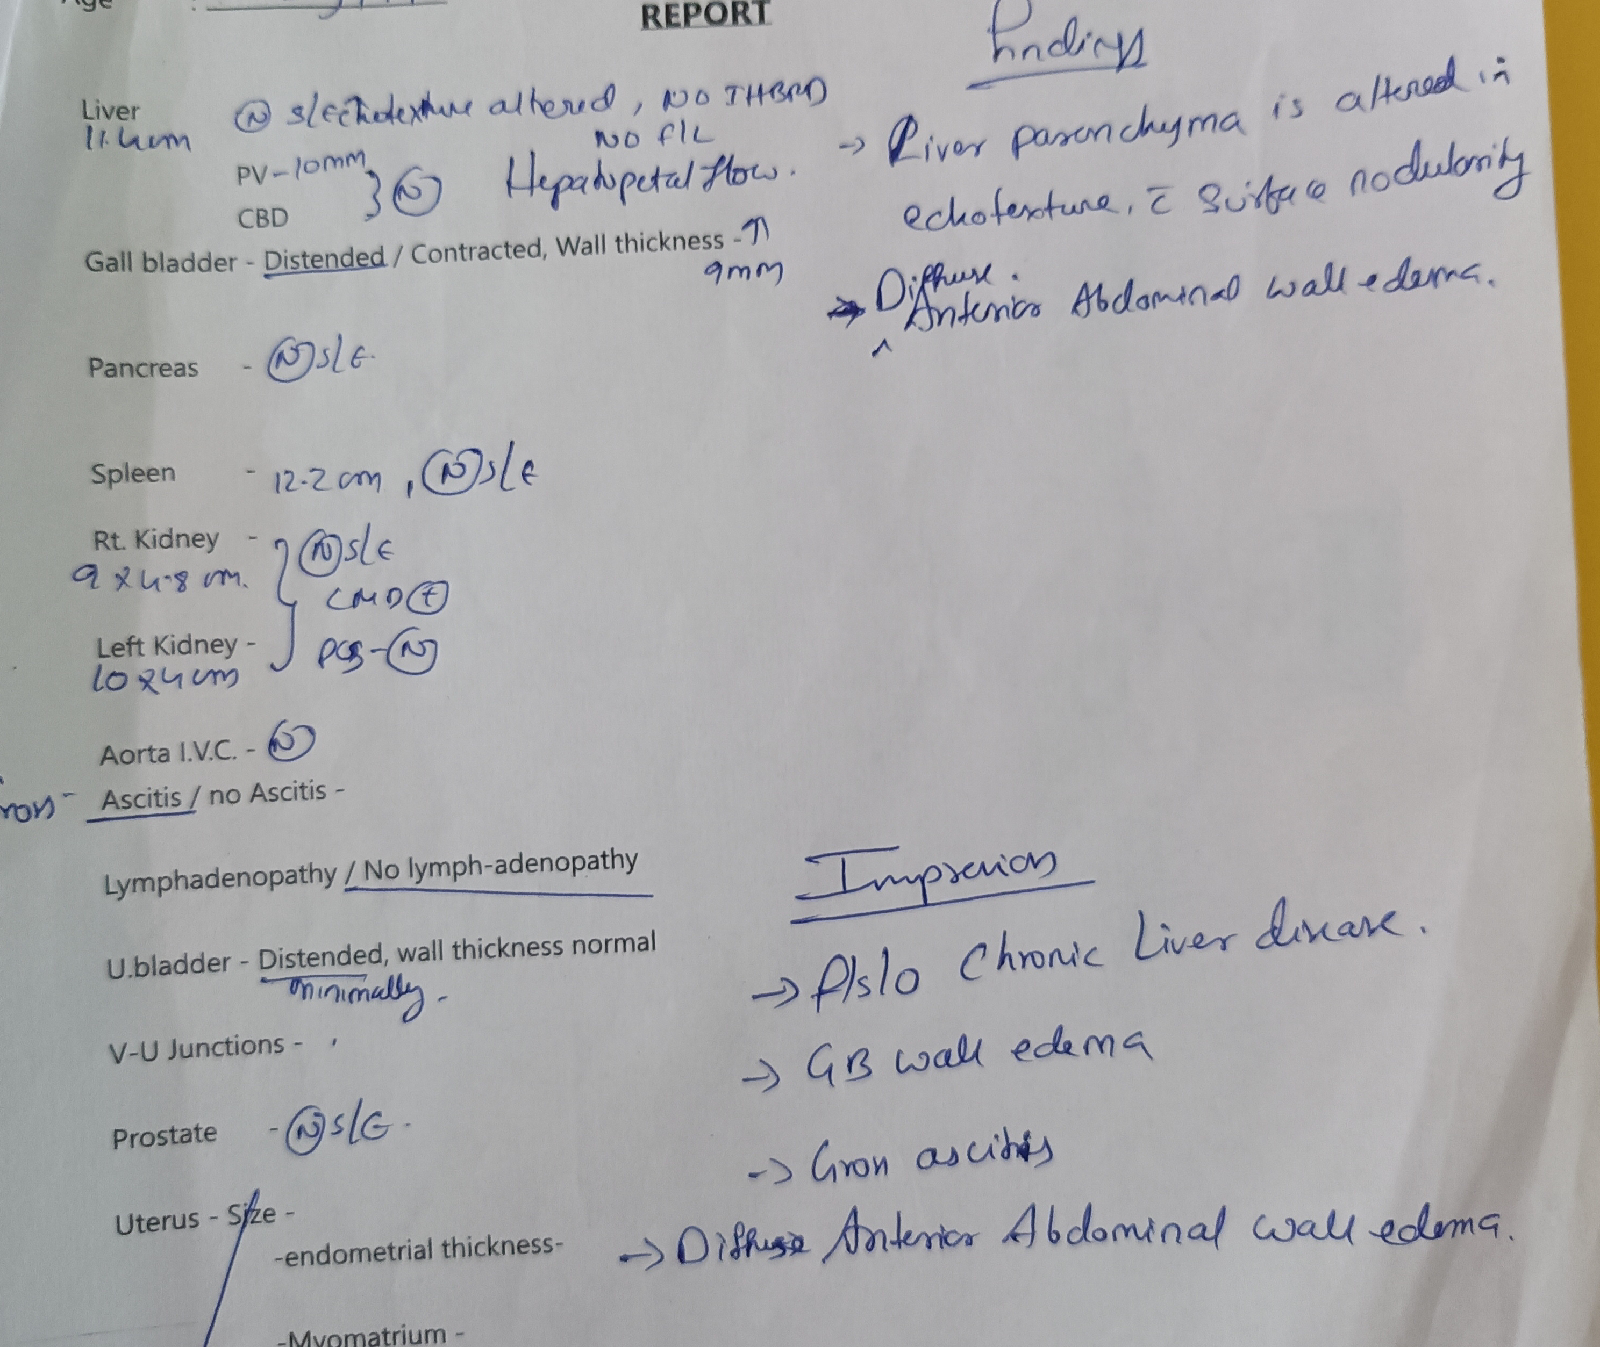 Age :
REPORT
Findings
Liver (N) s/echotexture altered, NO IHBRD
11.4cm NO F/L
PV-10mm } (N) Hepatopetal flow.
CBD
Gall bladder - Distended / Contracted, Wall thickness -↑
9mm
→ Liver parenchyma is altered in
echotexture, c̄ surface nodularity
→ Diffuse.
^ Anterior Abdominal wall edema.
Pancreas - (N) s/E
Spleen - 12.2 cm, (N) s/E
Rt. Kidney - (N) s/E
9 x 4.8 cm. CMD (+)
Left Kidney - PCS - (N)
10 x 4 cm
Aorta I.V.C. - (N)
Ascitis / no Ascitis -
Lymphadenopathy / No lymph-adenopathy
U.bladder - Distended, wall thickness normal
minimally.
V-U Junctions -
Prostate - (N) s/E.
Uterus - Size -
-endometrial thickness-
-Myomatrium -
Impression
→ F/s/o Chronic Liver disease.
→ GB wall edema
→ Gross ascitis
→ Diffuse Anterior Abdominal wall edema.